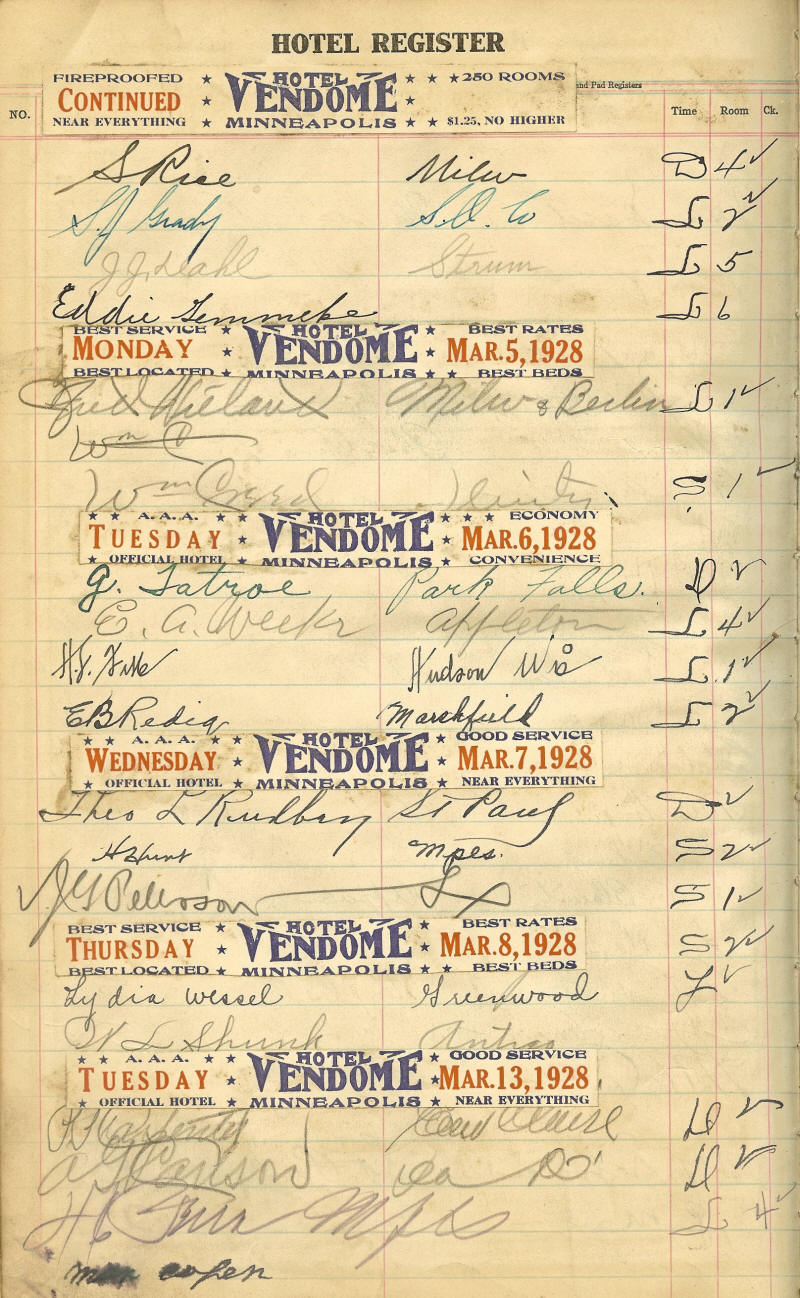 HOTEL REGISTER
FIREPROOFED ★ HOTEL ★ ★ ★ 250 ROOMS
CONTINUED ★ VENDOME ★
NEAR EVERYTHING ★ MINNEAPOLIS ★ ★ $1.25, NO HIGHER
and Pad Registers
NO. Time Room Ck.
S Rice Milw D 4 ✓
S.J Grady S.O. Co L 2 ✓
J.J. Dahl Strum L 5
Eddie Lemmeke L 6
BEST SERVICE ★ HOTEL ★ BEST RATES
MONDAY ★ VENDOME ★ MAR. 5, 1928
BEST LOCATED ★ MINNEAPOLIS ★ ★ BEST BEDS
Milw & Berlin L 1 ✓
Wm C
Wm Creed S 1 ✓
★ ★ A. A. A. ★ ★ HOTEL ★ ★ ★ ECONOMY
TUESDAY ★ VENDOME ★ MAR. 6, 1928
★ OFFICIAL HOTEL ★ MINNEAPOLIS ★ CONVENIENCE
G. Tatroe Park Falls. D ✓
E. A. Weekr Appleton L 4 ✓
Hudson Wis L 1 ✓
E B Redig Marshfield L 2 ✓
★ ★ A. A. A. ★ ★ HOTEL ★ GOOD SERVICE
WEDNESDAY ★ VENDOME ★ MAR. 7, 1928
★ OFFICIAL HOTEL ★ MINNEAPOLIS ★ NEAR EVERYTHING
Theo L St Paul D ✓
H Hunt Mpls. S 2 ✓
J G Peterson L S 1 ✓
BEST SERVICE ★ HOTEL ★ BEST RATES
THURSDAY ★ VENDOME ★ MAR. 8, 1928 S 2 ✓
BEST LOCATED ★ MINNEAPOLIS ★ ★ BEST BEDS
Lydia Wessel Greenwood L ✓
W L Shunk Antigo
★ ★ A. A. A. ★ ★ HOTEL ★ GOOD SERVICE
TUESDAY ★ VENDOME ★ MAR. 13, 1928
★ OFFICIAL HOTEL ★ MINNEAPOLIS ★ NEAR EVERYTHING
Carpenter Eau Claire D ✓
Do D ✓
Mpls L 4 ✓
open